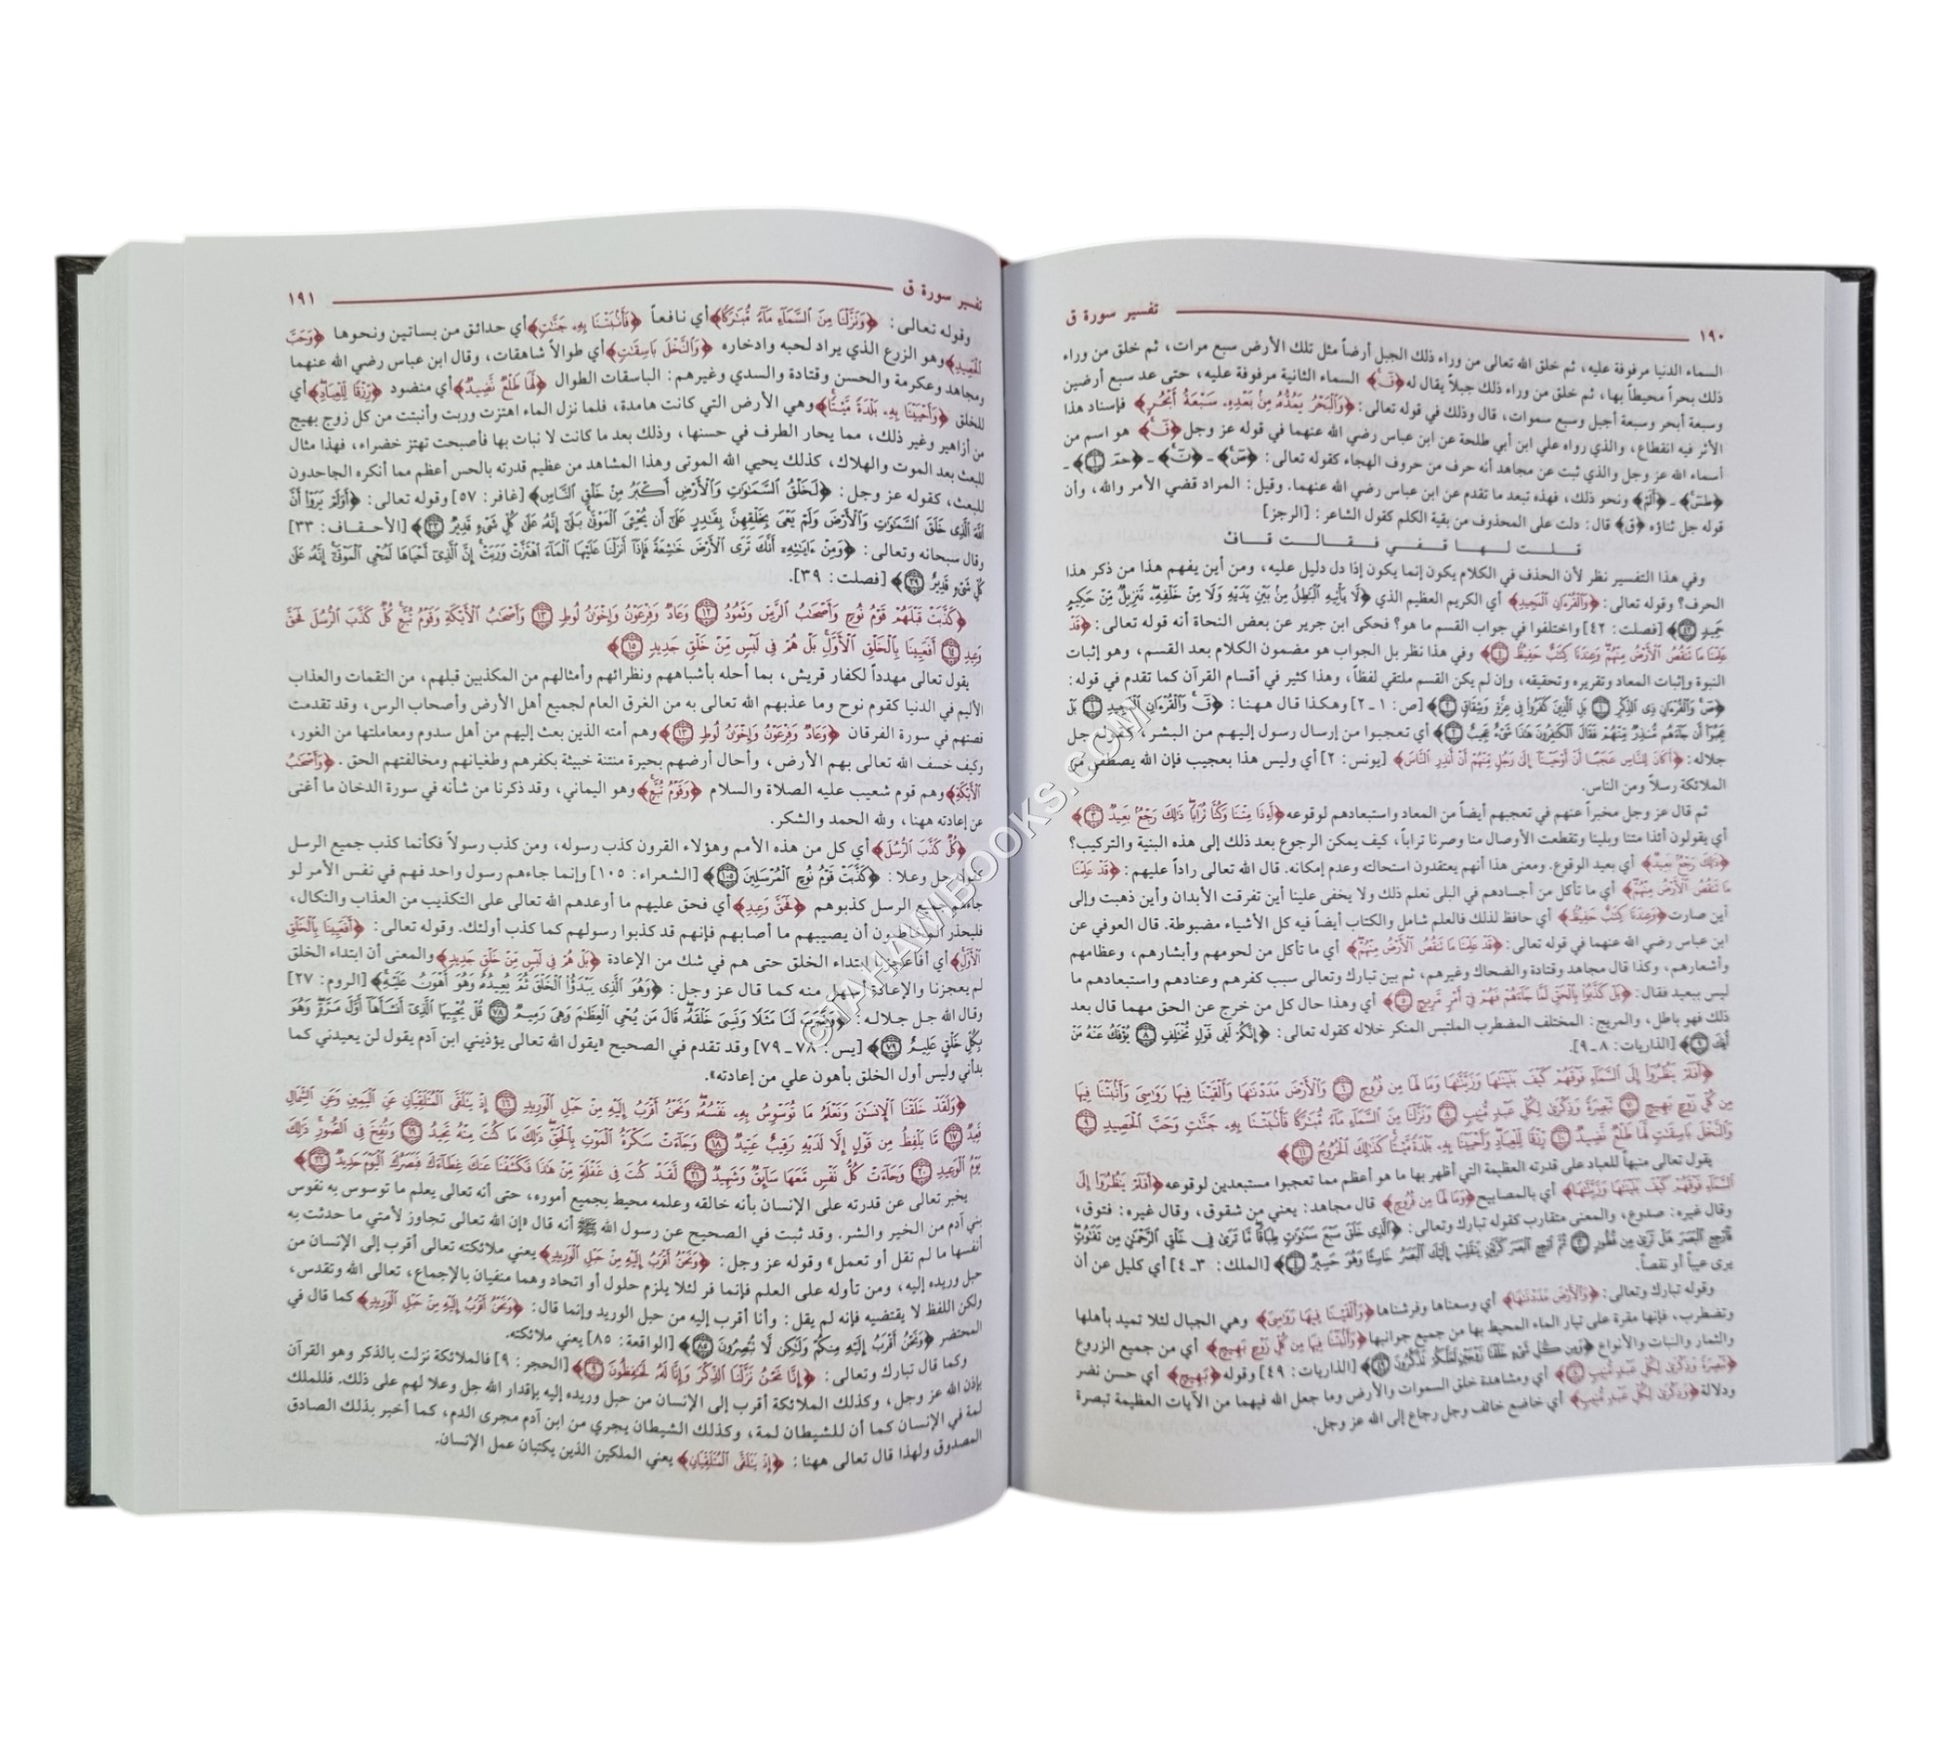 ١٩٠ تفسير سورة ق
السماء الدنيا مرفوفة عليه، ثم خلق الله تعالى من وراء ذلك الجبل أرضاً مثل تلك الأرض سبع مرات، ثم خلق من وراء
ذلك بحراً محيطاً بها، ثم خلق من وراء ذلك جبلاً يقال له ﴿قٓ﴾ السماء الثانية مرفوفة عليه، حتى عد سبع أرضين
وسبعة أبحر وسبعة أجبل وسبع سموات، قال وذلك في قوله تعالى: ﴿وَالْبَحْرُ يَمُدُّهُ مِنْ بَعْدِهِ سَبْعَةُ أَبْحُرٍ﴾ فإسناد هذا
الأثر فيه انقطاع، والذي رواه علي ابن أبي طلحة عن ابن عباس رضي الله عنهما في قوله عز وجل ﴿قٓ﴾ هو اسم من
أسماء الله عز وجل والذي ثبت عن مجاهد أنه حرف من حروف الهجاء كقوله تعالى: ﴿صٓ﴾ ـ ﴿نٓ﴾ ـ ﴿حمٓ ١﴾ ـ
﴿طسٓ﴾ ـ ﴿الٓمٓ﴾ ونحو ذلك، فهذه تبعد ما تقدم عن ابن عباس رضي الله عنهما. وقيل: المراد قضي الأمر والله، وأن
قوله جل ثناؤه ﴿ق﴾ قال: دلت على المحذوف من بقية الكلم كقول الشاعر: [الرجز]
قلت لها قفي فقالت قاف
وفي هذا التفسير نظر لأن الحذف في الكلام يكون إنما يكون إذا دل دليل عليه، ومن أين يفهم هذا من ذكر هذا
الحرف؟ وقوله تعالى: ﴿وَالْقُرْءَانِ الْمَجِيدِ﴾ أي الكريم العظيم الذي ﴿لَا يَأْتِيهِ الْبَاطِلُ مِنْ بَيْنِ يَدَيْهِ وَلَا مِنْ خَلْفِهِ تَنْزِيلٌ مِنْ حَكِيمٍ
حَمِيدٍ ٤٢﴾ [فصلت: ٤٢] واختلفوا في جواب القسم ما هو؟ فحكى ابن جرير عن بعض النحاة أنه قوله تعالى: ﴿قَدْ
عَلِمْنَا مَا تَنقُصُ الْأَرْضُ مِنْهُمْ وَعِندَنَا كِتَابٌ حَفِيظٌ ٤﴾ وفي هذا نظر بل الجواب هو مضمون الكلام بعد القسم، وهو إثبات
النبوة وإثبات المعاد وتقريره وتحقيقه، وإن لم يكن القسم ملتقي لفظاً، وهذا كثير في أقسام القرآن كما تقدم في قوله:
﴿صٓ وَالْقُرْءَانِ ذِي الذِّكْرِ ١ بَلِ الَّذِينَ كَفَرُوا فِي عِزَّةٍ وَشِقَاقٍ ٢﴾ [ص: ١ـ٢] وهكذا قال ههنا: ﴿قٓ وَالْقُرْءَانِ الْمَجِيدِ ١ بَلْ
عَجِبُوا أَن جَاءَهُم مُّنذِرٌ مِّنْهُمْ فَقَالَ الْكَافِرُونَ هَذَا شَيْءٌ عَجِيبٌ ٢﴾ أي تعجبوا من إرسال رسول إليهم من البشر، كقوله جل
جلاله: ﴿أَكَانَ لِلنَّاسِ عَجَبًا أَنْ أَوْحَيْنَا إِلَى رَجُلٍ مِّنْهُمْ أَنْ أَنذِرِ النَّاسَ﴾ [يونس: ٢] أي وليس هذا بعجيب فإن الله يصطفي من
الملائكة رسلاً ومن الناس.
ثم قال عز وجل مخبراً عنهم في تعجبهم أيضاً من المعاد واستبعادهم لوقوعه ﴿أَءِذَا مِتْنَا وَكُنَّا تُرَابًا ذَلِكَ رَجْعٌ بَعِيدٌ ٣﴾
أي يقولون أئذا متنا وبلينا وتقطعت الأوصال منا وصرنا تراباً، كيف يمكن الرجوع بعد ذلك إلى هذه البنية والتركيب؟
﴿ذَلِكَ رَجْعٌ بَعِيدٌ﴾ أي بعيد الوقوع. ومعنى هذا أنهم يعتقدون استحالته وعدم إمكانه. قال الله تعالى راداً عليهم: ﴿قَدْ عَلِمْنَا
مَا تَنقُصُ الْأَرْضُ مِنْهُمْ﴾ أي ما تأكل من أجسادهم في البلى نعلم ذلك ولا يخفى علينا أين تفرقت الأبدان وأين ذهبت وإلى
أين صارت ﴿وَعِندَنَا كِتَابٌ حَفِيظٌ﴾ أي حافظ لذلك فالعلم شامل والكتاب أيضاً فيه كل الأشياء مضبوطة. قال العوفي عن
ابن عباس رضي الله عنهما في قوله تعالى: ﴿قَدْ عَلِمْنَا مَا تَنقُصُ الْأَرْضُ مِنْهُمْ﴾ أي ما تأكل من لحومهم وأبشارهم، وعظامهم
وأشعارهم، وكذا قال مجاهد وقتادة والضحاك وغيرهم، ثم بين تبارك وتعالى سبب كفرهم وعنادهم واستبعادهم ما
ليس ببعيد فقال: ﴿بَلْ كَذَّبُوا بِالْحَقِّ لَمَّا جَاءَهُمْ فَهُمْ فِي أَمْرٍ مَّرِيجٍ ٥﴾ أي وهذا حال كل من خرج عن الحق مهما قال بعد
ذلك فهو باطل، والمريج: المختلف المضطرب الملتبس المنكر خلاله كقوله تعالى: ﴿إِنَّكُمْ لَفِي قَوْلٍ مُّخْتَلِفٍ ٨ يُؤْفَكُ عَنْهُ مَنْ
أُفِكَ ٩﴾ [الذاريات: ٨ـ٩].
﴿أَفَلَمْ يَنظُرُوا إِلَى السَّمَاءِ فَوْقَهُمْ كَيْفَ بَنَيْنَاهَا وَزَيَّنَّاهَا وَمَا لَهَا مِن فُرُوجٍ ٦ وَالْأَرْضَ مَدَدْنَاهَا وَأَلْقَيْنَا فِيهَا رَوَاسِيَ وَأَنبَتْنَا فِيهَا
مِن كُلِّ زَوْجٍ بَهِيجٍ ٧ تَبْصِرَةً وَذِكْرَى لِكُلِّ عَبْدٍ مُّنِيبٍ ٨ وَنَزَّلْنَا مِنَ السَّمَاءِ مَاءً مُّبَارَكًا فَأَنبَتْنَا بِهِ جَنَّاتٍ وَحَبَّ الْحَصِيدِ ٩
وَالنَّخْلَ بَاسِقَاتٍ لَّهَا طَلْعٌ نَّضِيدٌ ١٠ رِّزْقًا لِّلْعِبَادِ وَأَحْيَيْنَا بِهِ بَلْدَةً مَّيْتًا كَذَلِكَ الْخُرُوجُ ١١﴾
يقول تعالى منبهاً للعباد على قدرته العظيمة التي أظهر بها ما هو أعظم مما تعجبوا مستبعدين لوقوعه ﴿أَفَلَمْ يَنظُرُوا إِلَى
السَّمَاءِ فَوْقَهُمْ كَيْفَ بَنَيْنَاهَا وَزَيَّنَّاهَا﴾ أي بالمصابيح ﴿وَمَا لَهَا مِن فُرُوجٍ﴾ قال مجاهد: يعني من شقوق، وقال غيره: فتوق،
وقال غيره: صدوع، والمعنى متقارب كقوله تبارك وتعالى: ﴿الَّذِي خَلَقَ سَبْعَ سَمَاوَاتٍ طِبَاقًا مَّا تَرَى فِي خَلْقِ الرَّحْمَنِ مِن تَفَاوُتٍ
فَارْجِعِ الْبَصَرَ هَلْ تَرَى مِن فُطُورٍ ٣ ثُمَّ ارْجِعِ الْبَصَرَ كَرَّتَيْنِ يَنقَلِبْ إِلَيْكَ الْبَصَرُ خَاسِئًا وَهُوَ حَسِيرٌ ٤﴾ [الملك: ٣ـ٤] أي كليل عن أن
يرى عيباً أو نقصاً.
وقوله تبارك وتعالى: ﴿وَالْأَرْضَ مَدَدْنَاهَا﴾ أي وسعناها وفرشناها ﴿وَأَلْقَيْنَا فِيهَا رَوَاسِيَ﴾ وهي الجبال لئلا تميد بأهلها
وتضطرب، فإنها مقرة على تيار الماء المحيط بها من جميع جوانبها ﴿وَأَنبَتْنَا فِيهَا مِن كُلِّ زَوْجٍ بَهِيجٍ﴾ أي من جميع الزروع
والثمار والنبات والأنواع ﴿وَمِن كُلِّ شَيْءٍ خَلَقْنَا زَوْجَيْنِ لَعَلَّكُمْ تَذَكَّرُونَ ٤٩﴾ [الذاريات: ٤٩] وقوله ﴿بَهِيجٍ﴾ أي حسن نضر
﴿تَبْصِرَةً وَذِكْرَى لِكُلِّ عَبْدٍ مُّنِيبٍ ٨﴾ أي ومشاهدة خلق السموات والأرض وما جعل الله فيهما من الآيات العظيمة تبصرة
ودلالة ﴿وَذِكْرَى لِكُلِّ عَبْدٍ مُّنِيبٍ﴾ أي خاضع خائف وجل رجاع إلى الله عز وجل.
تفسير سورة ق ١٩١
وقوله تعالى: ﴿وَنَزَّلْنَا مِنَ السَّمَاءِ مَاءً مُّبَارَكًا﴾ أي نافعاً ﴿فَأَنبَتْنَا بِهِ جَنَّاتٍ﴾ أي حدائق من بساتين ونحوها ﴿وَحَبَّ
الْحَصِيدِ﴾ وهو الزرع الذي يراد لحبه وادخاره ﴿وَالنَّخْلَ بَاسِقَاتٍ﴾ أي طوالاً شاهقات، وقال ابن عباس رضي الله عنهما
ومجاهد وعكرمة والحسن وقتادة والسدي وغيرهم: الباسقات الطوال ﴿لَّهَا طَلْعٌ نَّضِيدٌ﴾ أي منضود ﴿رِّزْقًا لِّلْعِبَادِ﴾ أي
للخلق ﴿وَأَحْيَيْنَا بِهِ بَلْدَةً مَّيْتًا﴾ وهي الأرض التي كانت هامدة، فلما نزل الماء اهتزت وربت وأنبتت من كل زوج بهيج
من أزاهير وغير ذلك، مما يحار الطرف في حسنها، وذلك بعد ما كانت لا نبات بها فأصبحت تهتز خضراء، فهذا مثال
للبعث بعد الموت والهلاك، كذلك يحيي الله الموتى وهذا المشاهد من عظيم قدرته بالحس أعظم مما أنكره الجاحدون
للبعث، كقوله عز وجل: ﴿لَخَلْقُ السَّمَاوَاتِ وَالْأَرْضِ أَكْبَرُ مِنْ خَلْقِ النَّاسِ﴾ [غافر: ٥٧] وقوله تعالى: ﴿أَوَلَمْ يَرَوْا أَنَّ
اللَّهَ الَّذِي خَلَقَ السَّمَاوَاتِ وَالْأَرْضَ وَلَمْ يَعْيَ بِخَلْقِهِنَّ بِقَادِرٍ عَلَى أَن يُحْيِيَ الْمَوْتَى بَلَى إِنَّهُ عَلَى كُلِّ شَيْءٍ قَدِيرٌ ٣٣﴾ [الأحقاف: ٣٣]
وقال سبحانه وتعالى: ﴿وَمِنْ ءَايَاتِهِ أَنَّكَ تَرَى الْأَرْضَ خَاشِعَةً فَإِذَا أَنزَلْنَا عَلَيْهَا الْمَاءَ اهْتَزَّتْ وَرَبَتْ إِنَّ الَّذِي أَحْيَاهَا لَمُحْيِ الْمَوْتَى إِنَّهُ عَلَى
كُلِّ شَيْءٍ قَدِيرٌ ٣٩﴾ [فصلت: ٣٩].
﴿كَذَّبَتْ قَبْلَهُمْ قَوْمُ نُوحٍ وَأَصْحَابُ الرَّسِّ وَثَمُودُ ١٢ وَعَادٌ وَفِرْعَوْنُ وَإِخْوَانُ لُوطٍ ١٣ وَأَصْحَابُ الْأَيْكَةِ وَقَوْمُ تُبَّعٍ كُلٌّ كَذَّبَ الرُّسُلَ فَحَقَّ
وَعِيدِ ١٤ أَفَعَيِينَا بِالْخَلْقِ الْأَوَّلِ بَلْ هُمْ فِي لَبْسٍ مِّنْ خَلْقٍ جَدِيدٍ ١٥﴾
يقول تعالى مهدداً لكفار قريش، بما أحله بأشباههم ونظرائهم وأمثالهم من المكذبين قبلهم، من النقمات والعذاب
الأليم في الدنيا كقوم نوح وما عذبهم الله تعالى به من الغرق العام لجميع أهل الأرض وأصحاب الرس، وقد تقدمت
قصتهم في سورة الفرقان ﴿وَعَادٌ وَفِرْعَوْنُ وَإِخْوَانُ لُوطٍ ١٣﴾ وهم أمته الذين بعث إليهم من أهل سدوم ومعاملتها من الغور،
وكيف خسف الله تعالى بهم الأرض، وأحال أرضهم بحيرة منتنة خبيثة بكفرهم وطغيانهم ومخالفتهم الحق. ﴿وَأَصْحَابُ
الْأَيْكَةِ﴾ وهم قوم شعيب عليه الصلاة والسلام ﴿وَقَوْمُ تُبَّعٍ﴾ وهو اليماني، وقد ذكرنا من شأنه في سورة الدخان ما أغنى
عن إعادته ههنا، ولله الحمد والشكر.
﴿كُلٌّ كَذَّبَ الرُّسُلَ﴾ أي كل من هذه الأمم وهؤلاء القرون كذب رسوله، ومن كذب رسولاً فكأنما كذب جميع الرسل
كقوله جل وعلا: ﴿كَذَّبَتْ قَوْمُ نُوحٍ الْمُرْسَلِينَ ١٠٥﴾ [الشعراء: ١٠٥] وإنما جاءهم رسول واحد فهم في نفس الأمر لو
جاءهم جميع الرسل كذبوهم ﴿فَحَقَّ وَعِيدِ﴾ أي فحق عليهم ما أوعدهم الله تعالى على التكذيب من العذاب والنكال،
فليحذر المخاطبون أن يصيبهم ما أصابهم فإنهم قد كذبوا رسولهم كما كذب أولئك. وقوله تعالى: ﴿أَفَعَيِينَا بِالْخَلْقِ
الْأَوَّلِ﴾ أي أفأعجزنا ابتداء الخلق حتى هم في شك من الإعادة ﴿بَلْ هُمْ فِي لَبْسٍ مِّنْ خَلْقٍ جَدِيدٍ﴾ والمعنى أن ابتداء الخلق
لم يعجزنا والإعادة أسهل منه كما قال عز وجل: ﴿وَهُوَ الَّذِي يَبْدَؤُا الْخَلْقَ ثُمَّ يُعِيدُهُ وَهُوَ أَهْوَنُ عَلَيْهِ﴾ [الروم: ٢٧]
وقال الله جل جلاله: ﴿وَضَرَبَ لَنَا مَثَلًا وَنَسِيَ خَلْقَهُ قَالَ مَن يُحْيِ الْعِظَامَ وَهِيَ رَمِيمٌ ٧٨ قُلْ يُحْيِيهَا الَّذِي أَنشَأَهَا أَوَّلَ مَرَّةٍ وَهُوَ
بِكُلِّ خَلْقٍ عَلِيمٌ ٧٩﴾ [يس: ٧٨ـ٧٩] وقد تقدم في الصحيح «يقول الله تعالى يؤذيني ابن آدم يقول لن يعيدني كما
بدأني وليس أول الخلق بأهون علي من إعادته».
﴿وَلَقَدْ خَلَقْنَا الْإِنسَانَ وَنَعْلَمُ مَا تُوَسْوِسُ بِهِ نَفْسُهُ وَنَحْنُ أَقْرَبُ إِلَيْهِ مِنْ حَبْلِ الْوَرِيدِ ١٦ إِذْ يَتَلَقَّى الْمُتَلَقِّيَانِ عَنِ الْيَمِينِ وَعَنِ الشِّمَالِ
قَعِيدٌ ١٧ مَّا يَلْفِظُ مِن قَوْلٍ إِلَّا لَدَيْهِ رَقِيبٌ عَتِيدٌ ١٨ وَجَاءَتْ سَكْرَةُ الْمَوْتِ بِالْحَقِّ ذَلِكَ مَا كُنتَ مِنْهُ تَحِيدُ ١٩ وَنُفِخَ فِي الصُّورِ ذَلِكَ
يَوْمُ الْوَعِيدِ ٢٠ وَجَاءَتْ كُلُّ نَفْسٍ مَّعَهَا سَائِقٌ وَشَهِيدٌ ٢١ لَّقَدْ كُنتَ فِي غَفْلَةٍ مِّنْ هَذَا فَكَشَفْنَا عَنكَ غِطَاءَكَ فَبَصَرُكَ الْيَوْمَ حَدِيدٌ ٢٢﴾
يخبر تعالى عن قدرته على الإنسان بأنه خالقه وعلمه محيط بجميع أموره، حتى أنه تعالى يعلم ما توسوس به نفوس
بني آدم من الخير والشر. وقد ثبت في الصحيح عن رسول الله ﷺ أنه قال «إن الله تعالى تجاوز لأمتي ما حدثت به
أنفسها ما لم تقل أو تعمل» وقوله عز وجل: ﴿وَنَحْنُ أَقْرَبُ إِلَيْهِ مِنْ حَبْلِ الْوَرِيدِ﴾ يعني ملائكته تعالى أقرب إلى الإنسان من
حبل وريده إليه، ومن تأوله على العلم فإنما فر لئلا يلزم حلول أو اتحاد وهما منفيان بالإجماع، تعالى الله وتقدس،
ولكن اللفظ لا يقتضيه فإنه لم يقل: وأنا أقرب إليه من حبل الوريد وإنما قال: ﴿وَنَحْنُ أَقْرَبُ إِلَيْهِ مِنْ حَبْلِ الْوَرِيدِ﴾ كما قال في
المحتضر ﴿وَنَحْنُ أَقْرَبُ إِلَيْهِ مِنكُمْ وَلَكِن لَّا تُبْصِرُونَ ٨٥﴾ [الواقعة: ٨٥] يعني ملائكته.
وكما قال تبارك وتعالى: ﴿إِنَّا نَحْنُ نَزَّلْنَا الذِّكْرَ وَإِنَّا لَهُ لَحَافِظُونَ ٩﴾ [الحجر: ٩] فالملائكة نزلت بالذكر وهو القرآن
بإذن الله عز وجل، وكذلك الملائكة أقرب إلى الإنسان من حبل وريده إليه بإقدار الله جل وعلا لهم على ذلك. فللملك
لمة في الإنسان كما أن للشيطان لمة، وكذلك الشيطان يجري من ابن آدم مجرى الدم، كما أخبر بذلك الصادق
المصدوق ولهذا قال تعالى ههنا: ﴿إِذْ يَتَلَقَّى الْمُتَلَقِّيَانِ﴾ يعني الملكين الذين يكتبان عمل الإنسان.
©TAHAWIBOOKS.COM